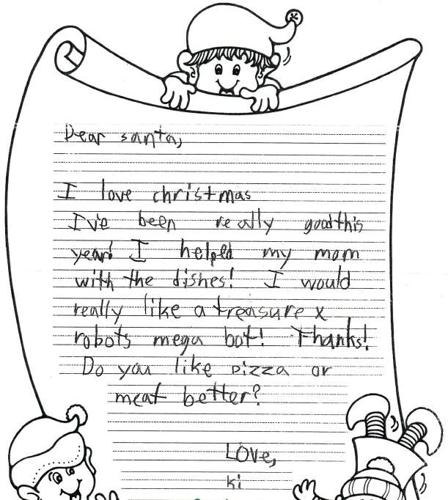 Dear santa,
I love christmas
I've been really good this
year! I helped my mom
with the dishes! I would
really like a treasure x
robots mega bot! Thanks!
Do you like pizza or
meat better?
Love,
ki